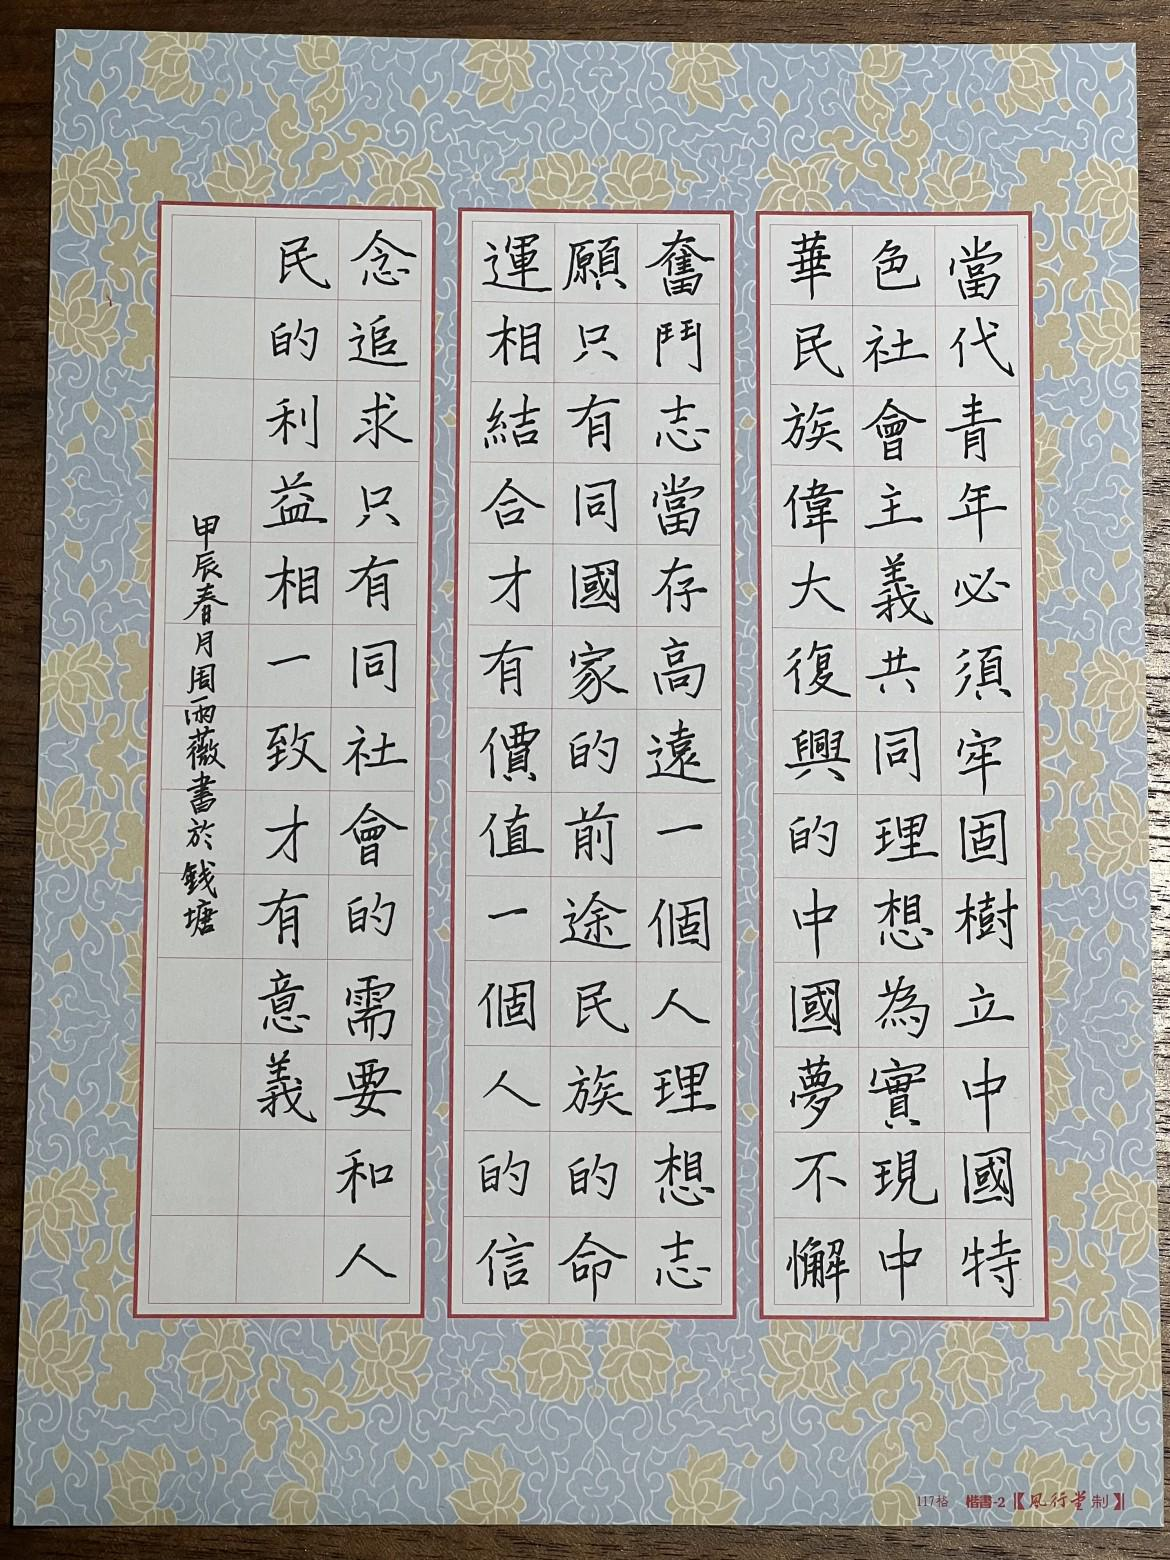 當代青年必須牢固樹立中國特
色社會主義共同理想為實現中
華民族偉大復興的中國夢不懈
奮鬥志當存高遠一個人理想志
願只有同國家的前途民族的命
運相結合才有價值一個人的信
念追求只有同社會的需要和人
民的利益相一致才有意義
甲辰春月周雨薇書於钱塘
117格 楷書-2【風行堂制】